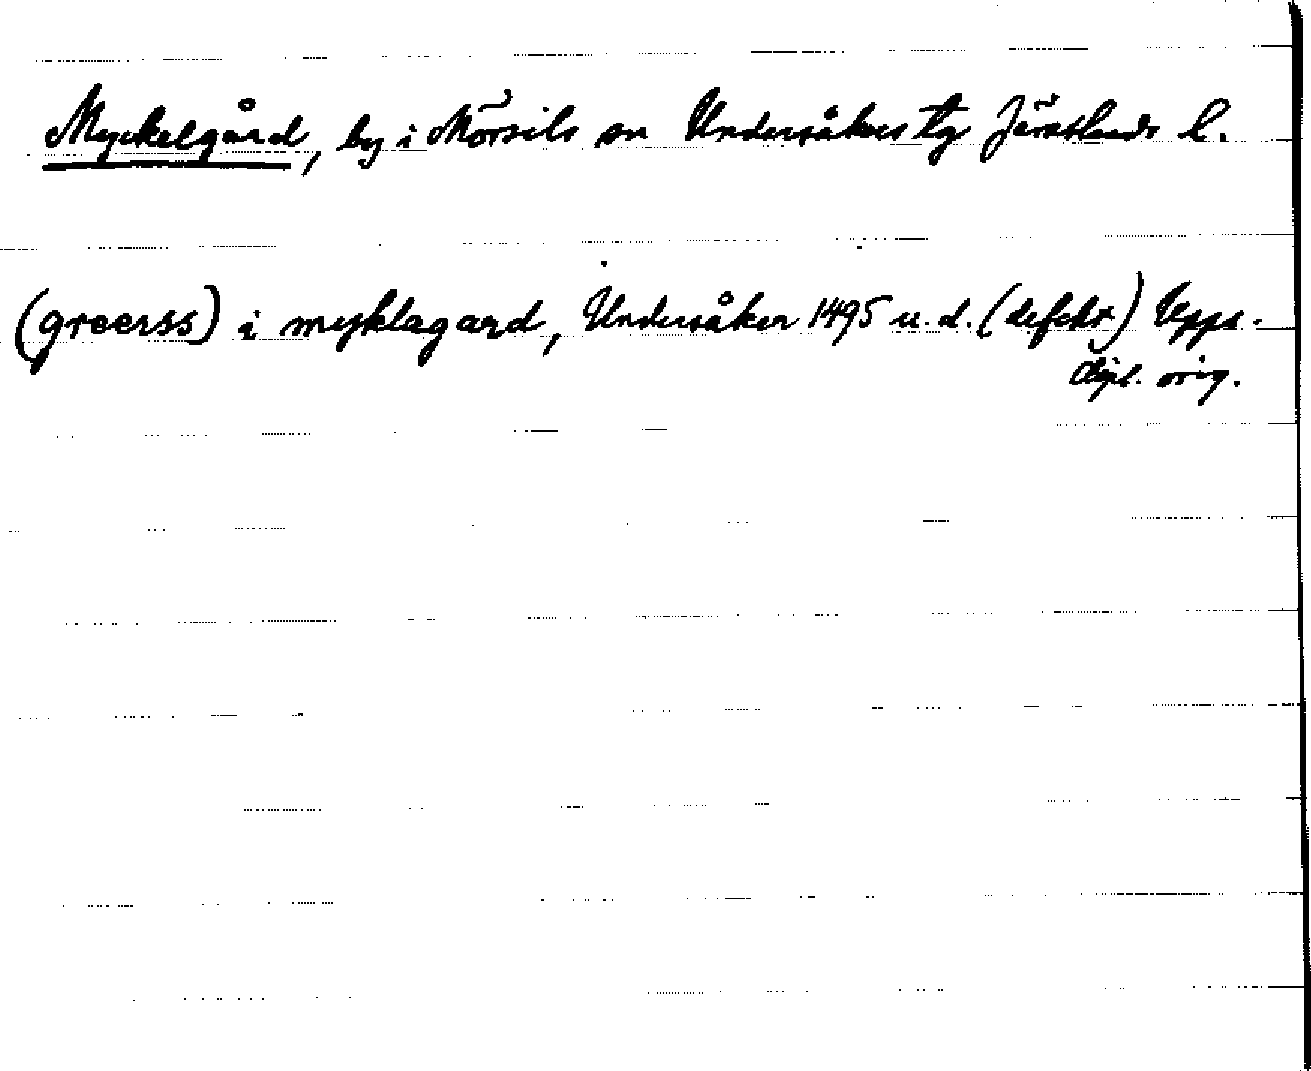 Myckelgård, by i Mörsils sn Undersåkers tg Jämtlands l.
(greerss) i myklagard, Undersåker 1495 u.d. (defekt) Upps.
dipl. orig.